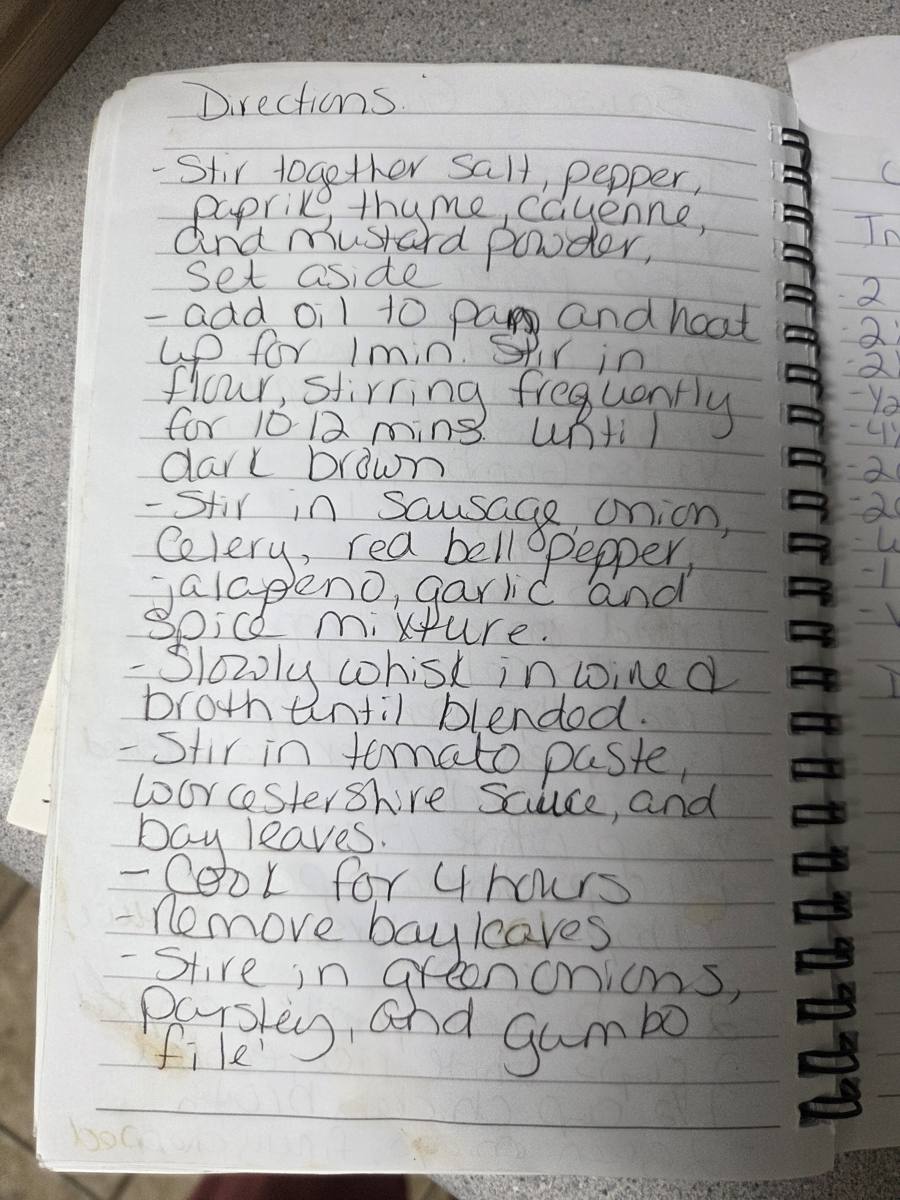 Directions.
- Stir together salt, pepper,
paprika, thyme, cayenne,
and mustard powder,
set aside
- add oil to pan and heat
up for 1min. Stir in
flour, stirring frequently
for 10-12 mins. until
dark brown
- Stir in sausage, onion,
Celery, red bell pepper,
jalapeno, garlic and
spice mixture.
- Slowly whisk in wine &
broth until blended.
- Stir in tomato paste,
Worcestershire sauce, and
bay leaves.
- Cook for 4 hours
- Remove bay leaves
- Stire in green onions,
Parsley, and gumbo
file'
In
- 2
- 2
- 2
- 1/2
- 4
- 2
- 2
- 1